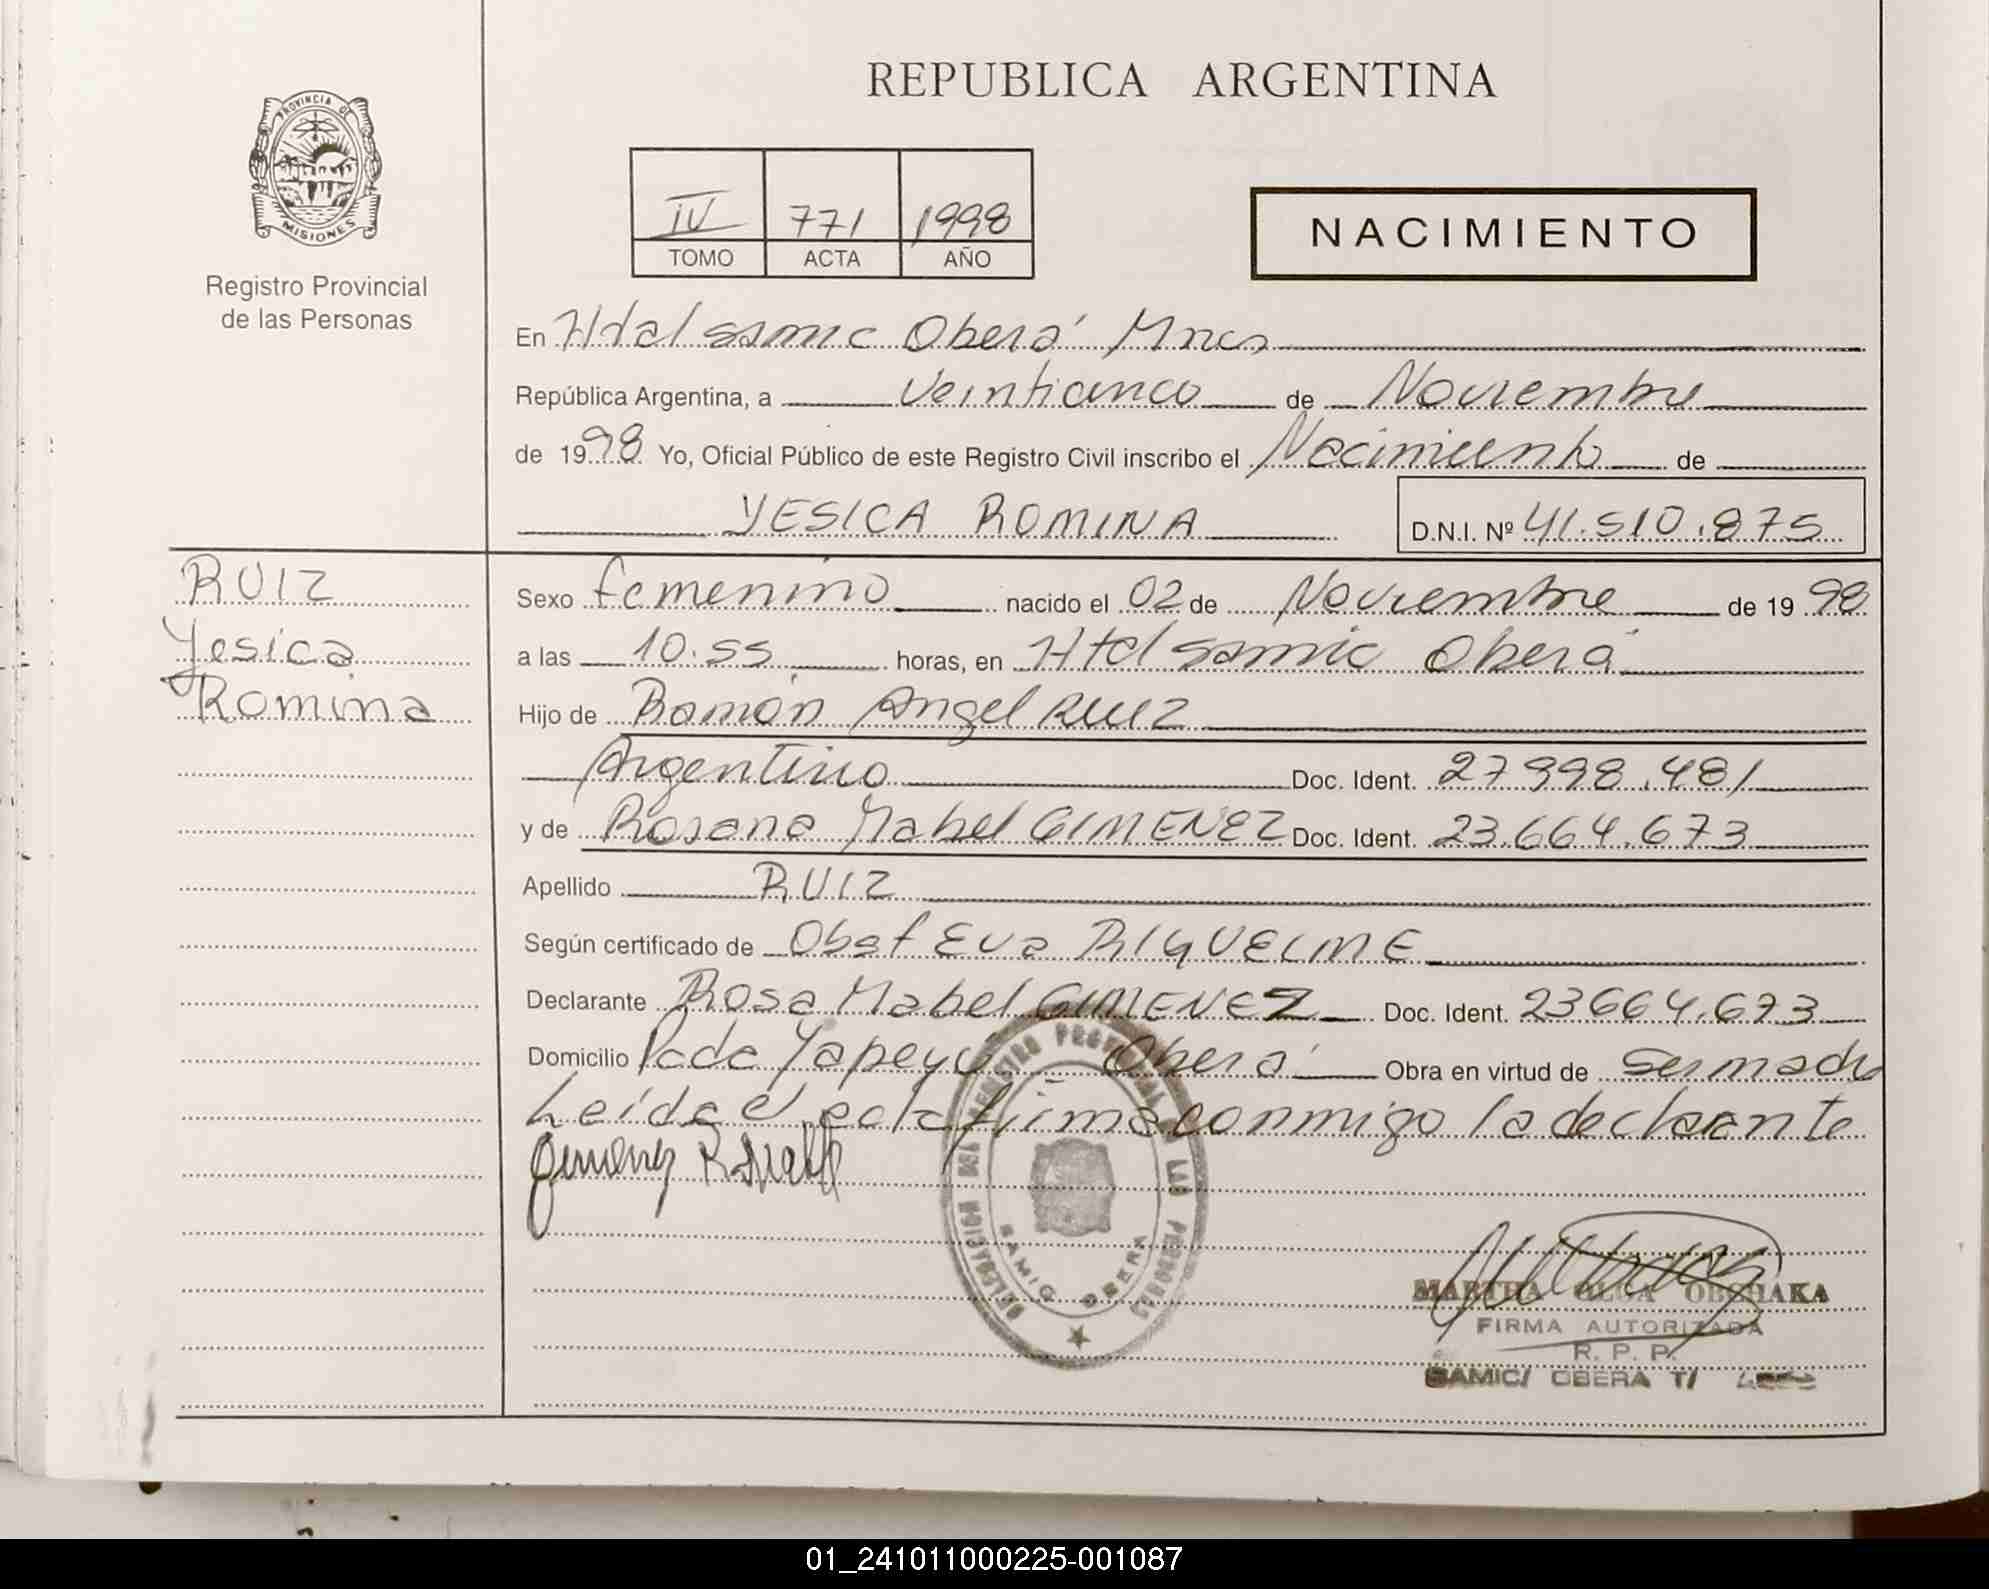 REPUBLICA ARGENTINA
PROVINCIA DE
MISIONES
Registro Provincial
de las Personas
IV 771 1998
TOMO ACTA AÑO
NACIMIENTO
En Htal samic Oberá Mnes
República Argentina, a Veinticinco de Noviembre
de 1998 Yo, Oficial Público de este Registro Civil inscribo el Nacimiento de
YESICA ROMINA D.N.I. Nº 41.510.875
RUIZ
Yesica
Romina
Sexo femenino nacido el 02 de Noviembre de 1998
a las 10.55 horas, en Htal samic Oberá
Hijo de Ramón Angel RUIZ
Argentino Doc. Ident. 27.998.481
y de Rosana Mabel GIMENEZ Doc. Ident. 23.664.673
Apellido RUIZ
Según certificado de Obst Eva RIQUELME
Declarante Rosa Mabel GIMENEZ Doc. Ident. 23664.673
Domicilio Pcda Yapeyú Oberá Obra en virtud de ser madre
Leída el acta firma conmigo la declarante
Gimenez R
DELEGACION DEL REGISTRO PROVINCIAL DE LAS PERSONAS
SAMIC OBERA
MARTHA OLGA
FIRMA AUTORIZADA
R. P. P.
SAMIC/ OBERA T/
01_241011000225-001087